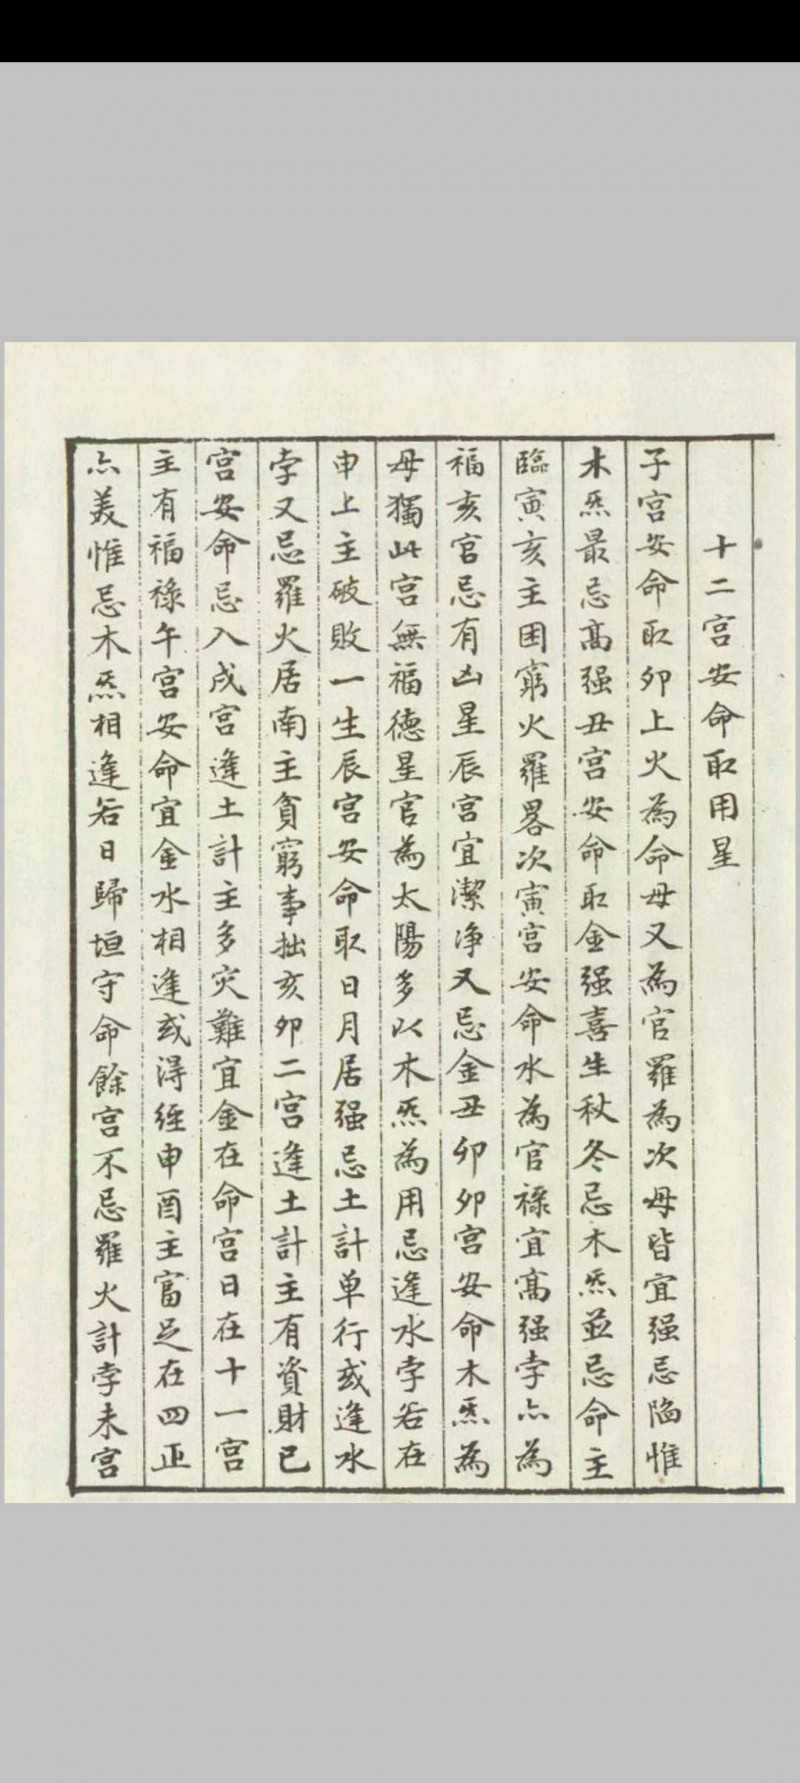 十二宮安命取用星
子宮安命取卯上火為命母又為官羅為次母皆宜强忌陷惟
木炁最忌高强丑宮安命取金强喜生秋冬忌木炁並忌命主
臨寅亥主困窮火羅畧次寅宮安命水為官祿宜高强孛亦為
福亥官忌有凶星辰宮宜潔净又忌金丑卯卯宮安命木炁為
母獨此宮無福德星官為太陽多以木炁為用忌逢水孛若在
申上主破敗一生辰宮安命取日月居强忌土計单行或逢水
孛又忌羅火居南主貧窮事拙亥卯二宮逢土計主有資財巳
宮安命忌入戌宮逢土計主多灾難宜金在命宮日在十一宮
主有福祿午宮安命宜金水相逢或得經申酉主富足在四正
亦美惟忌木炁相逢若日歸垣守命餘宮不忌羅火計孛未宮